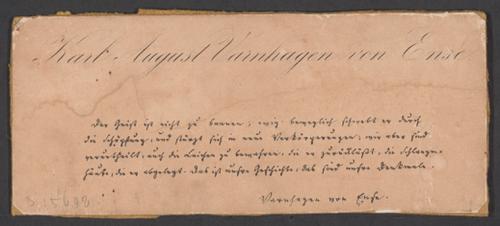 Karl August Varnhagen von Ense
Der Geist ist nicht zu bannen; ewig beweglich schwebt er durch
die Schöpfung, und stürzt sich in neue Verkörperungen; wir aber sind
verurtheilt, auch die Leichen zu bewahren, die er zurückläßt, die Schlangen-
häute, die er abgelegt. Das ist unsre Geschichte; das sind unsre Denkmale.
Varnhagen von Ense.